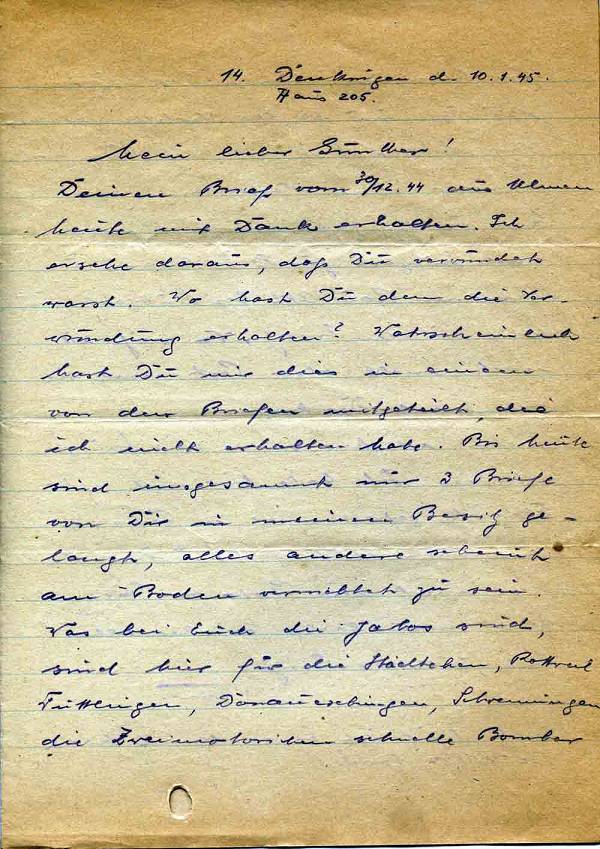 14. Denkingen d. 10.1.45.
Haus 205.
Mein lieber Günther!
Deinen Brief vom 30/12.44 aus Ulmen
heute mit Dank erhalten. Ich
ersehe daraus, daß Du verwundet
warst. Wo hast Du den die Ver-
wundung erhalten? Wahrscheinlich
hast Du mir dies in einem
von den Briefen mitgeteilt, die
ich nicht erhalten habe. Bis heute
sind insgesamt nur 3 Briefe
von Dir in meinen Besitz ge-
langt, alles andere scheint
am Boden vernichtet zu sein.
Was bei Euch die Jabos sind,
sind hier für die Städtchen, Rottweil
Tuttlingen, Donaueschingen, Schwenningen
die Zweimotorichen schnelle Bomber